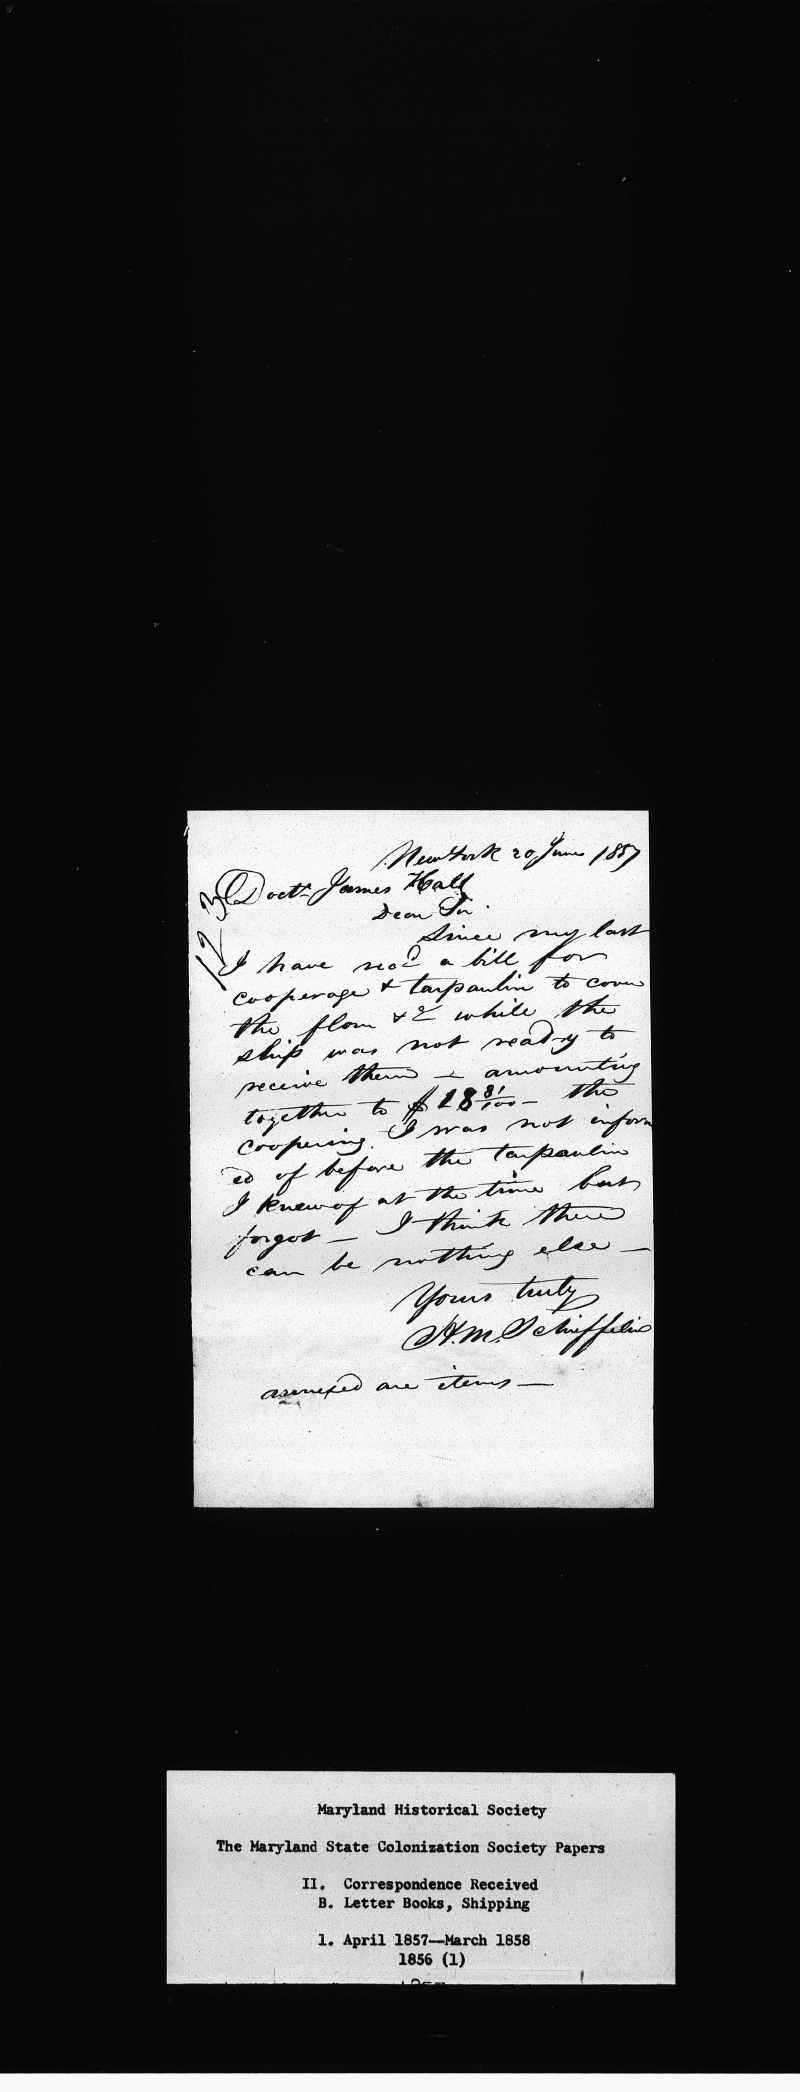 123
New York 20 June 1857
Doctr James Hall
Dear Sir.
Since my last
I have recd a bill for
cooperage & tarpaulin to cover
the flour &c while the
ship was not ready to
receive them — amounting
together to $18 81/100 — the
coopering. I was not inform
ed of before the tarpaulin
I knew of at the time but
forgot — I think there
can be nothing else —
Yours truly
H. M. Schieffelin
annexed are items —
Maryland Historical Society
The Maryland State Colonization Society Papers
II. Correspondence Received
B. Letter Books, Shipping
1. April 1857—March 1858
1856 (1)